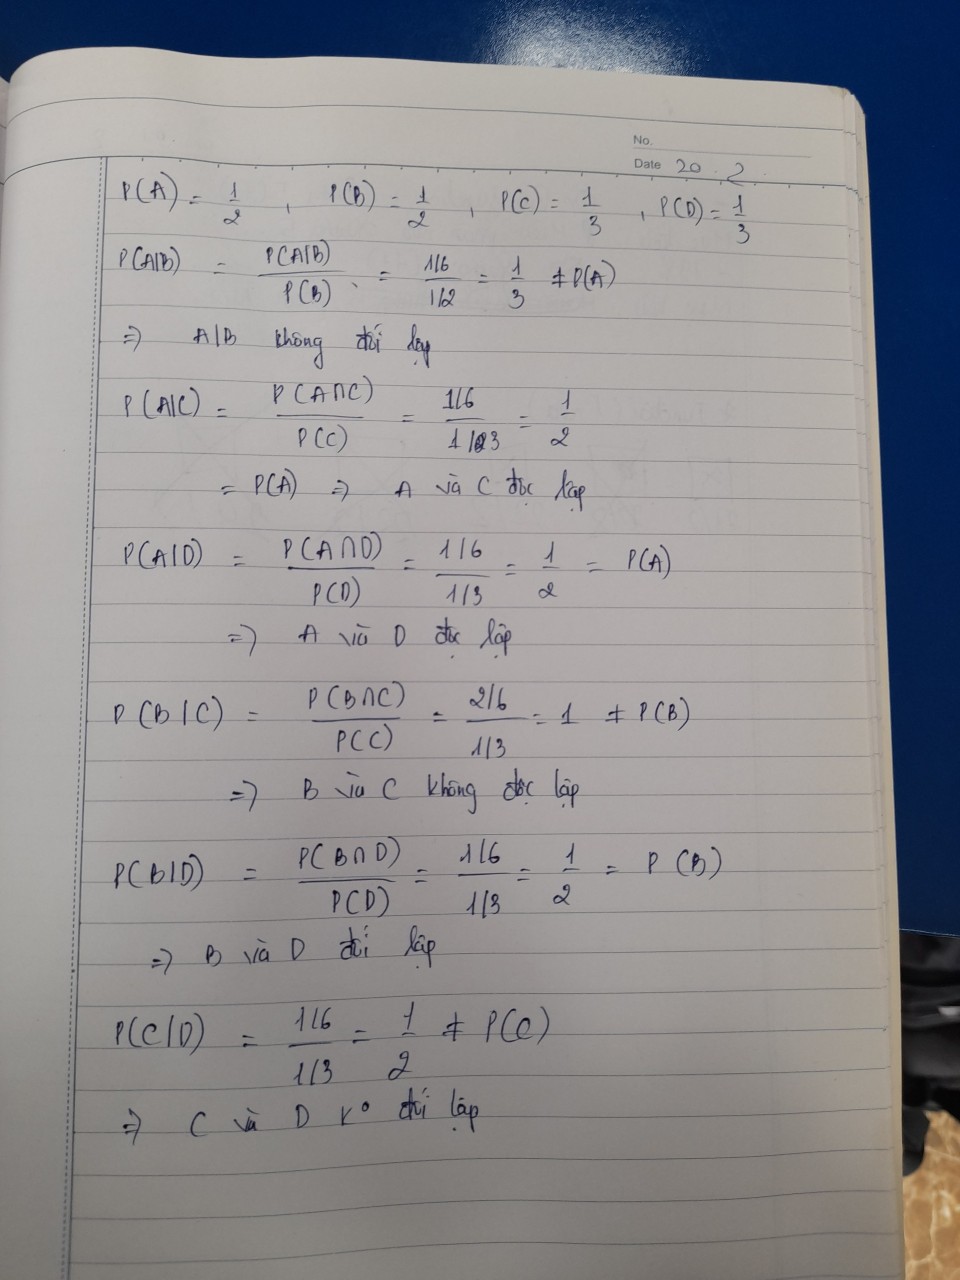 No.
Date 20. 2
P(A) = 1/2 , P(B) = 1/2 , P(C) = 1/3 , P(D) = 1/3
P(A|B) = P(A|B)/P(B) = (1/6)/(1/2) = 1/3 ≠ P(A)
=> A|B không đối lập
P(A|C) = P(A∩C)/P(C) = (1/6)/(1/3) = 1/2
= P(A) => A và C độc lập
P(A|D) = P(A∩D)/P(D) = (1/6)/(1/3) = 1/2 = P(A)
=> A và D độc lập
P(B|C) = P(B∩C)/P(C) = (2/6)/(1/3) = 1 ≠ P(B)
=> B và C không độc lập
P(B|D) = P(B∩D)/P(D) = (1/6)/(1/3) = 1/2 = P(B)
=> B và D đối lập
P(C|D) = (1/6)/(1/3) = 1/2 ≠ P(C)
=> C và D K° đối lập